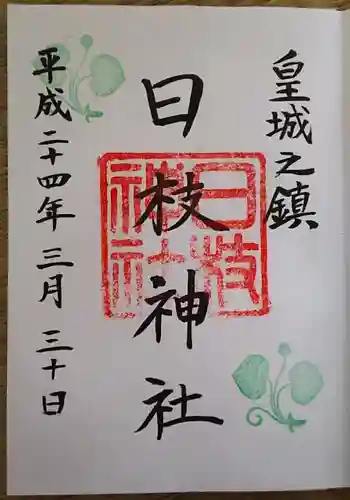 皇城之鎮
日枝神社
日枝神社
平成二十四年三月三十日